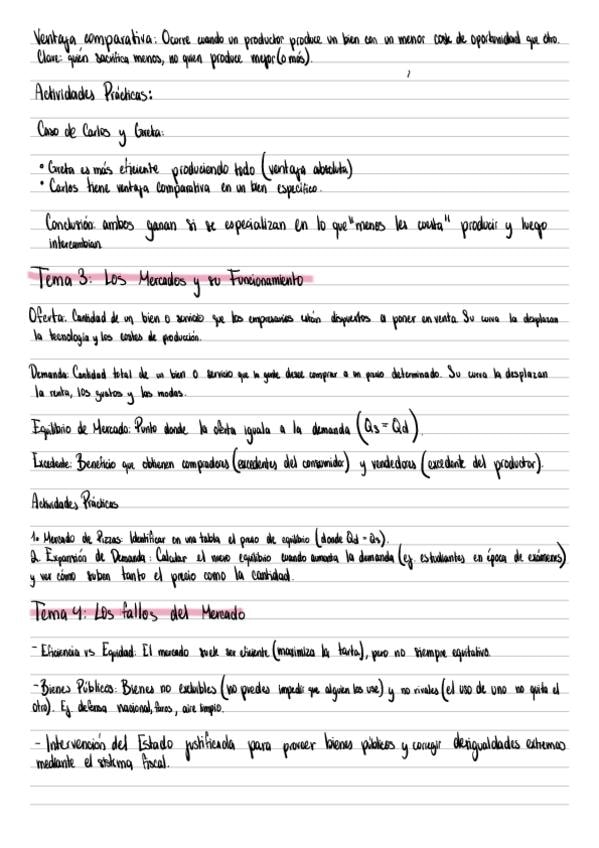 Ventaja comparativa: Ocurre cuando un productor produce un bien con un menor coste de oportunidad que otro.
Clave: quién sacrifica menos, no quien produce mejor (o más).
Actividades Prácticas:
Caso de Carlos y Greta:
• Greta es más eficiente produciendo todo (ventaja absoluta)
• Carlos tiene ventaja comparativa en un bien específico.
Conclusión: ambos ganan si se especializan en lo que "menos les cuesta" producir y luego
intercambian
Tema 3: Los Mercados y su Funcionamiento
Oferta: Cantidad de un bien o servicio que los empresarios están dispuestos a poner en venta. Su curva la desplazan
la tecnología y los costes de producción.
Demanda: Cantidad total de un bien o servicio que la gente desea comprar a un precio determinado. Su curva la desplazan
la renta, los gustos y las modas.
Equilibrio de Mercado: Punto donde la oferta iguala a la demanda (Qs = Qd).
Excedente: Beneficio que obtienen compradores (excedentes del consumidor) y vendedores (excedente del productor).
Actividades Prácticas
1. Mercado de Pizzas: Identificar en una tabla el precio de equilibrio (donde Qd = Qs).
2. Expansión de Demanda: Calcular el nuevo equilibrio cuando aumenta la demanda (ej. estudiantes en época de exámenes)
y ver cómo suben tanto el precio como la cantidad.
Tema 4: Los fallos del Mercado
- Eficiencia vs Equidad: El mercado suele ser eficiente (maximiza la tarta), pero no siempre equitativo.
- Bienes Públicos: Bienes no excluibles (no puedes impedir que alguien los use) y no rivales (el uso de uno no quita el
otro). Ej. defensa nacional, faros, aire limpio.
- Intervención del Estado justificada para proveer bienes públicos y corregir desigualdades extremas
mediante el sistema fiscal.